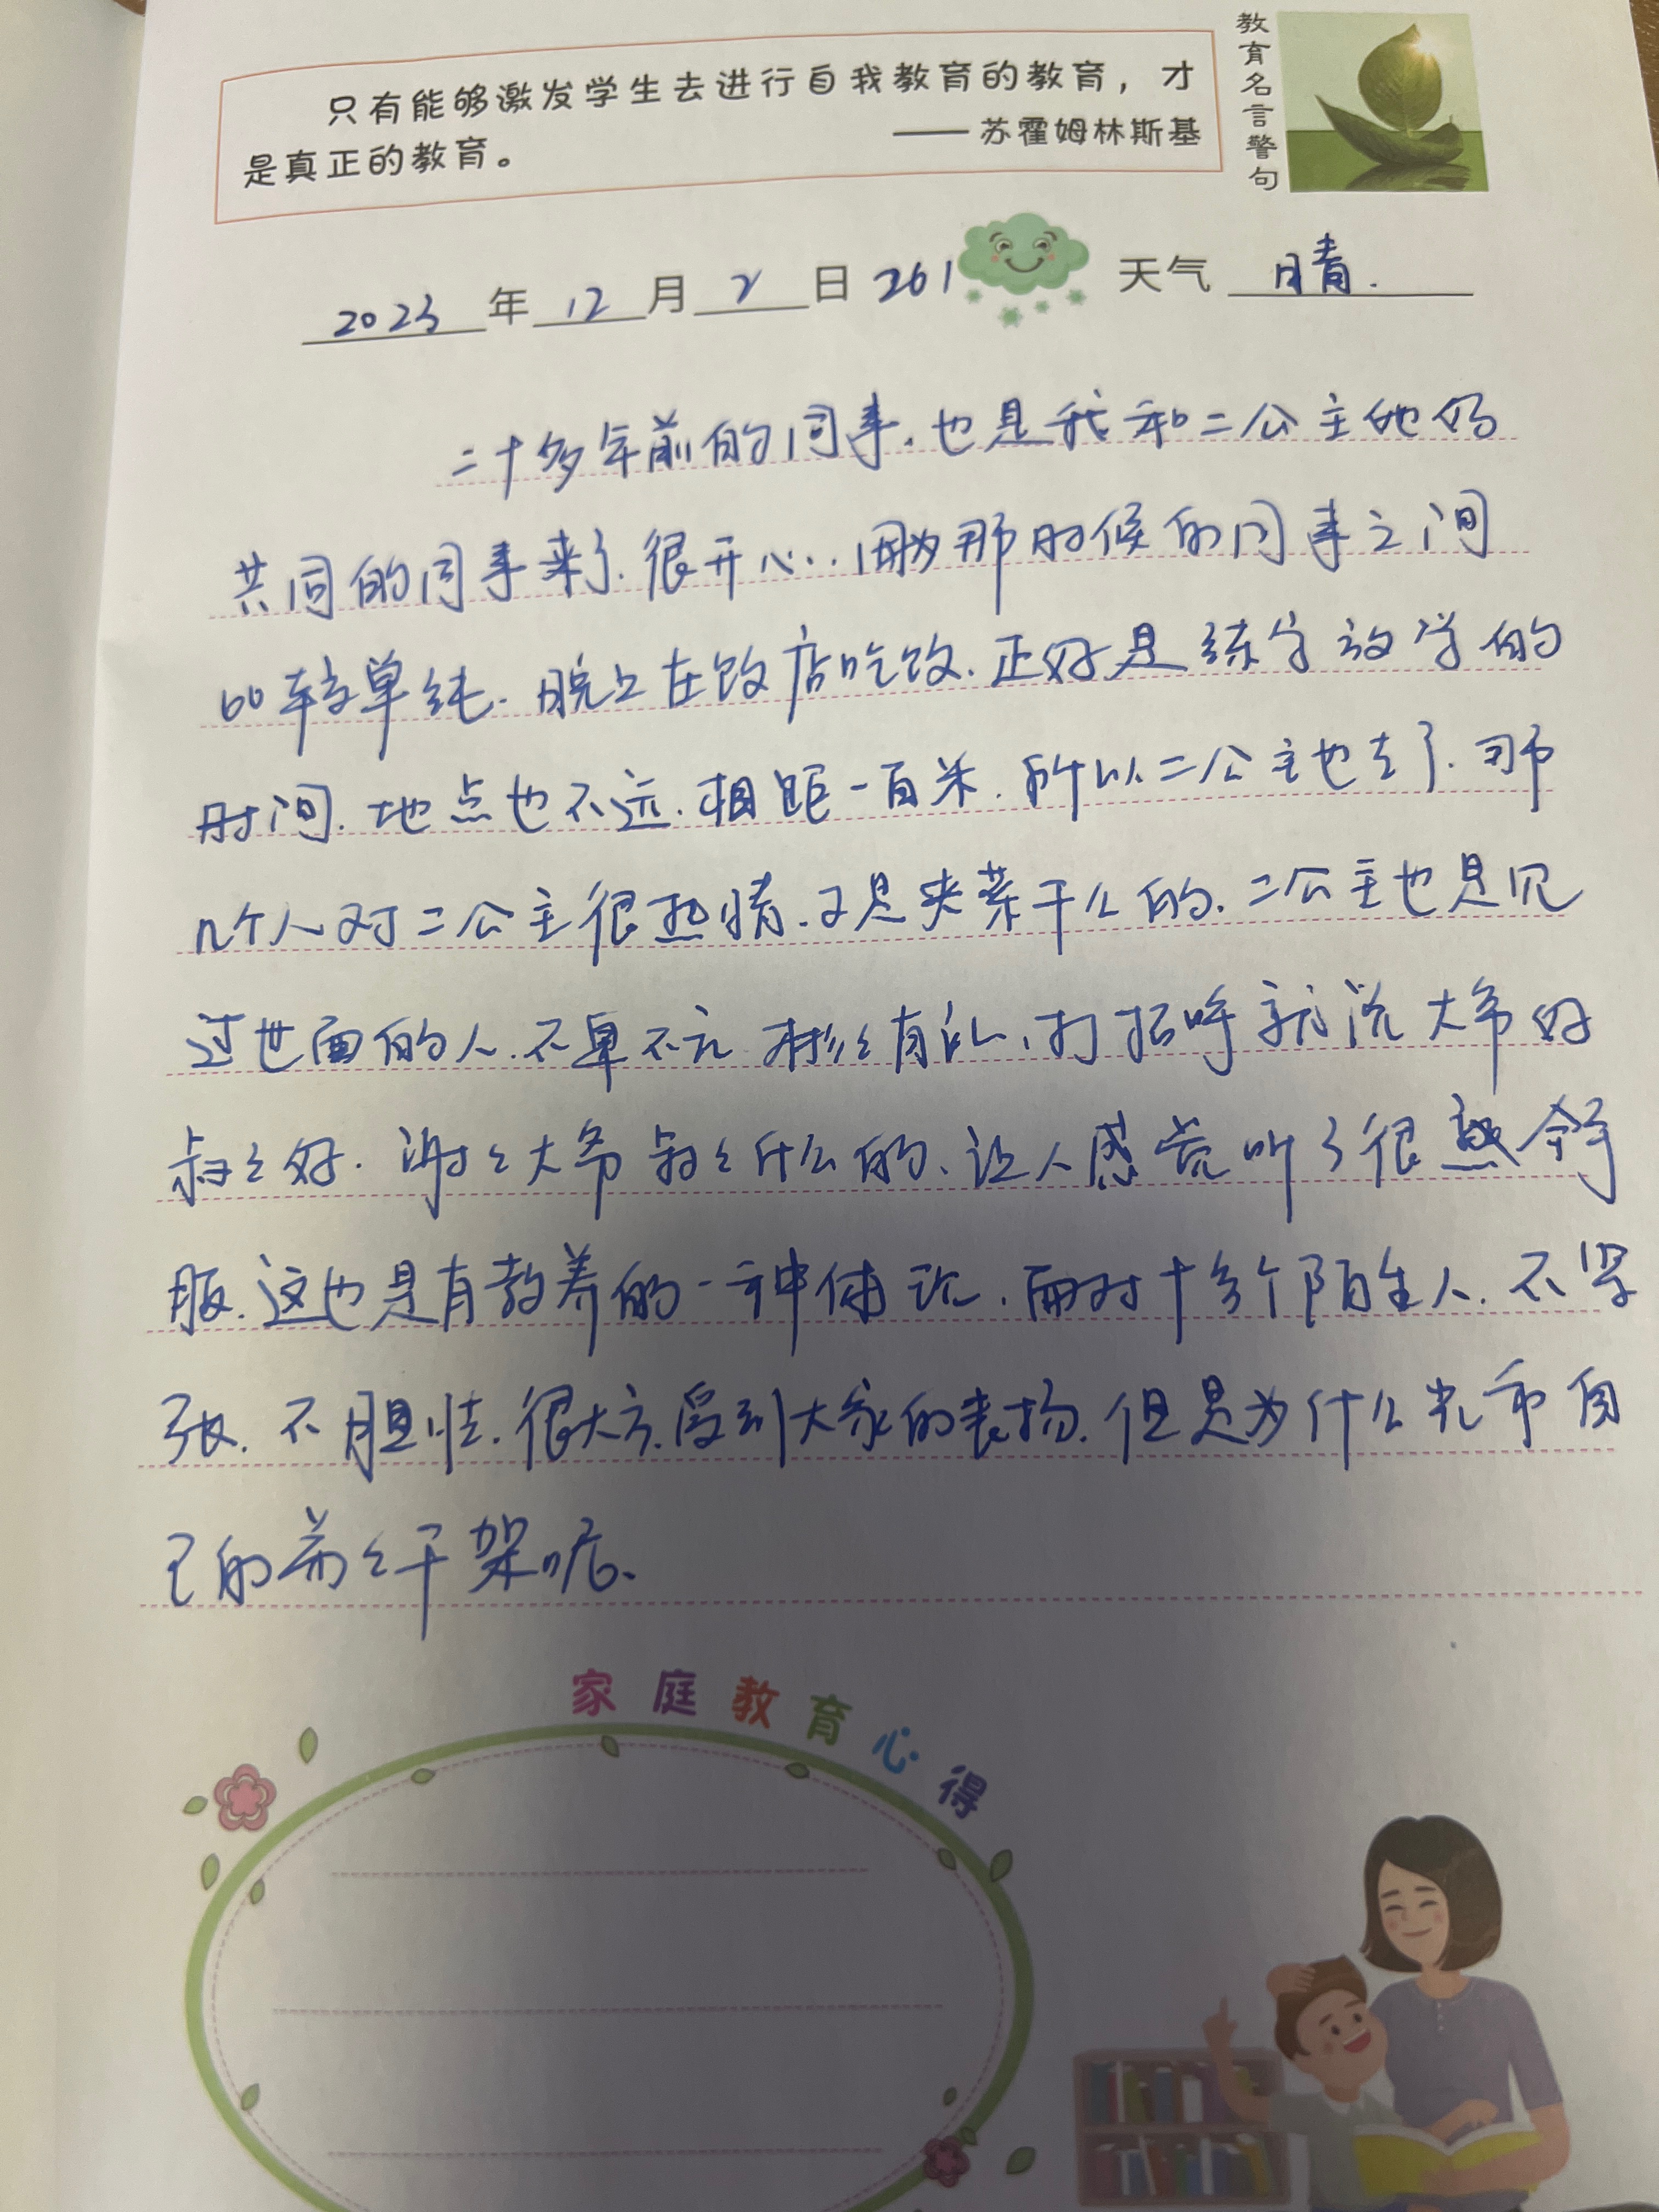 教育名言警句
只有能够激发学生去进行自我教育的教育，才
是真正的教育。 ——苏霍姆林斯基
2023年12月2日 261 天气 晴.
二十多年前的同事.也是我和二公主她妈
共同的同事来了.很开心..因为那时候的同事之间
比较单纯.晚上在饭店吃饭.正好是练字放学的
时间.地点也不远.相距一百米.所以二公主也去了.那
几个人对二公主很热情.又是夹菜干么的.二公主也是见
过世面的人.不卑不亢 彬彬有礼,打招呼就说大爷好
叔叔好.谢谢大爷叔叔什么的、让人感觉听了很 舒
服.这也是有教养的一种体现.面对十多个陌生人.不紧
张.不胆怯.很大方.受到大家的表扬.但是为什么光和自
己的弟弟干架呢.
家庭教育心得